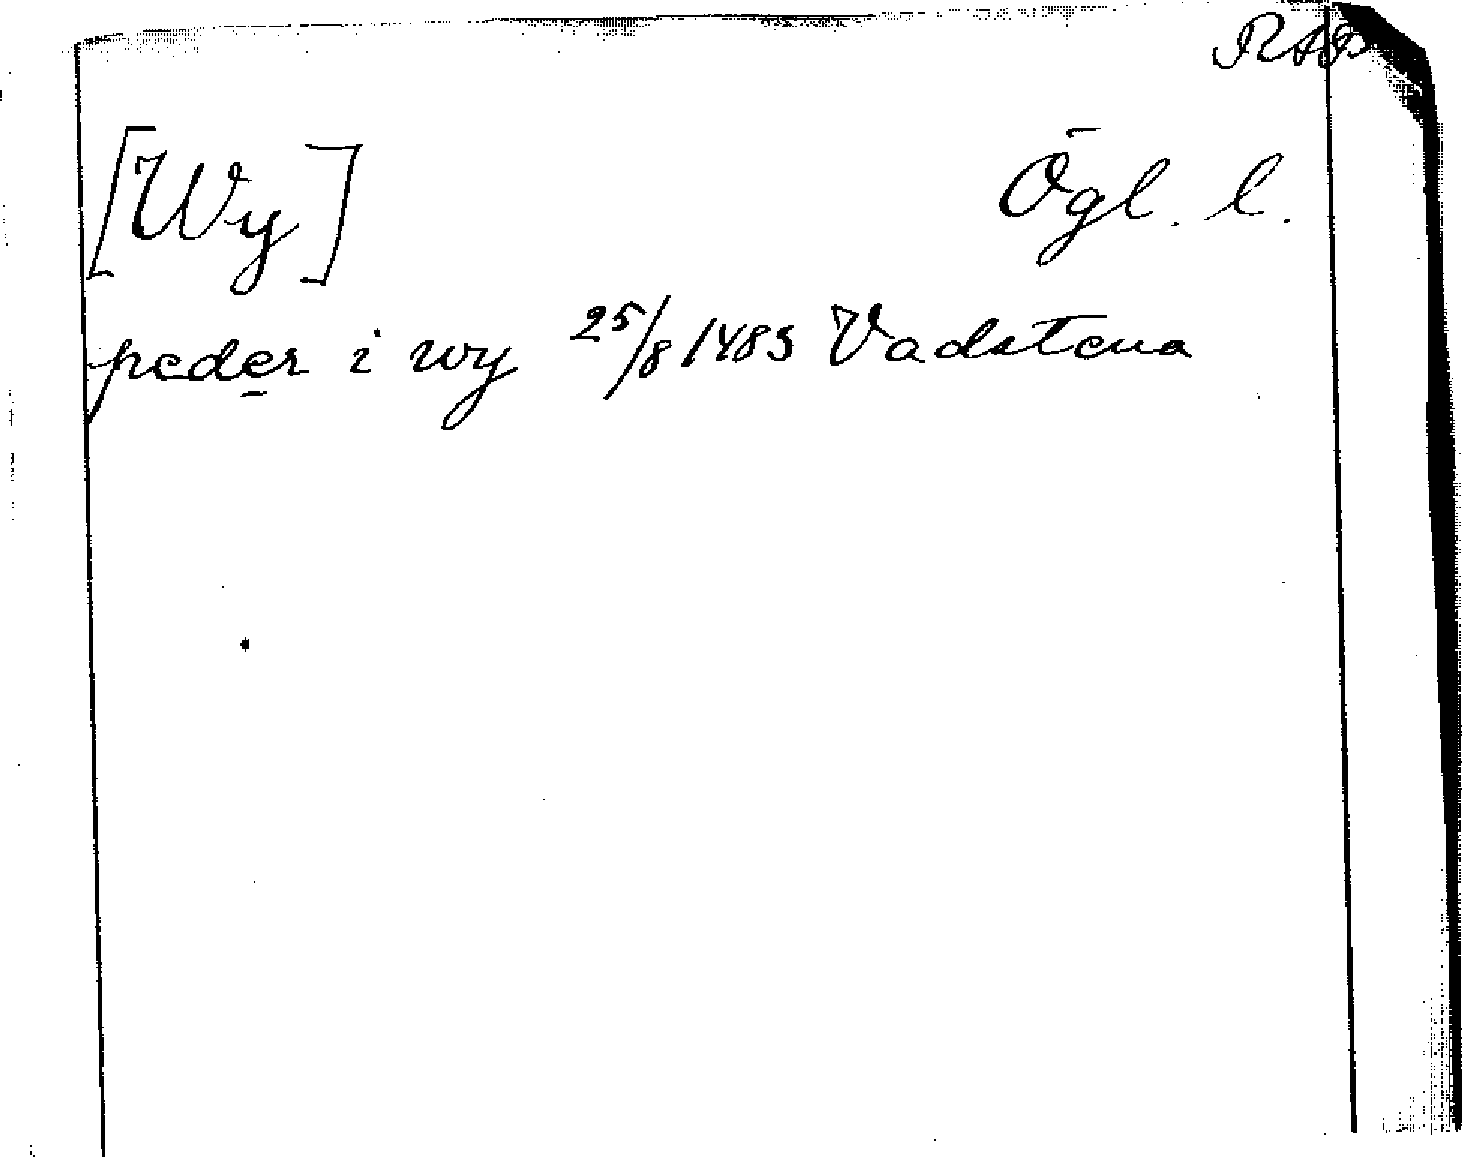 RAP
[Wy] Ögl. l.
peder i wy 25/8 1485 Vadstena